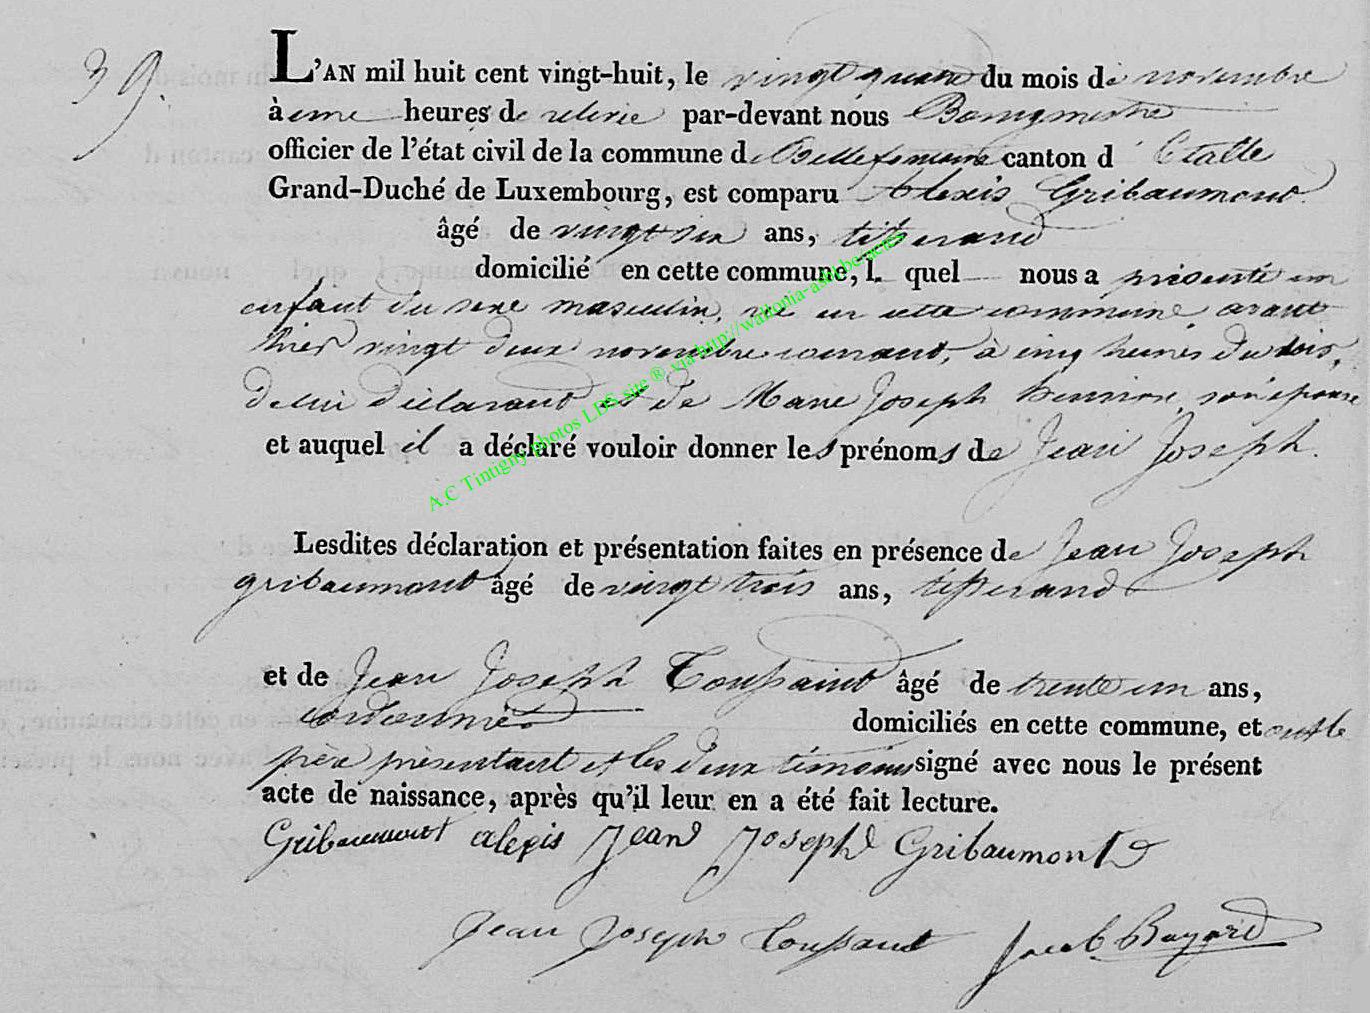 39.
L'AN mil huit cent vingt-huit, le vingt quatre du mois de novembre
à une heures de relevée par-devant nous Bourgmestre
officier de l'état civil de la commune de Bellefontaine canton d'Etalle
Grand-Duché de Luxembourg, est comparu Alexis Gribaumont
âgé de vingt six ans, tisserand
domicilié en cette commune, lequel nous a présenté un
enfant du sexe masculin, né en cette commune avant
hier vingt deux novembre courant, à cinq heures du soir,
de lui déclarant et de Marie Joseph son épouse
et auquel il a déclaré vouloir donner les prénoms de Jean Joseph.
Lesdites déclaration et présentation faites en présence de Jean Joseph
gribaumont âgé de vingt trois ans, tisserand
et de Jean Joseph Toussaint âgé de trente un ans,
cordonnier domiciliés en cette commune, et ont le
père présentant et les deux témoins signé avec nous le présent
acte de naissance, après qu'il leur en a été fait lecture.
Gribaumont alexis Jean Joseph Gribaumont
Jean Joseph Toussaint Jacob Bayard
A.C Tintigny photos LDS site ® via http://wallonia-asbl.be/actes